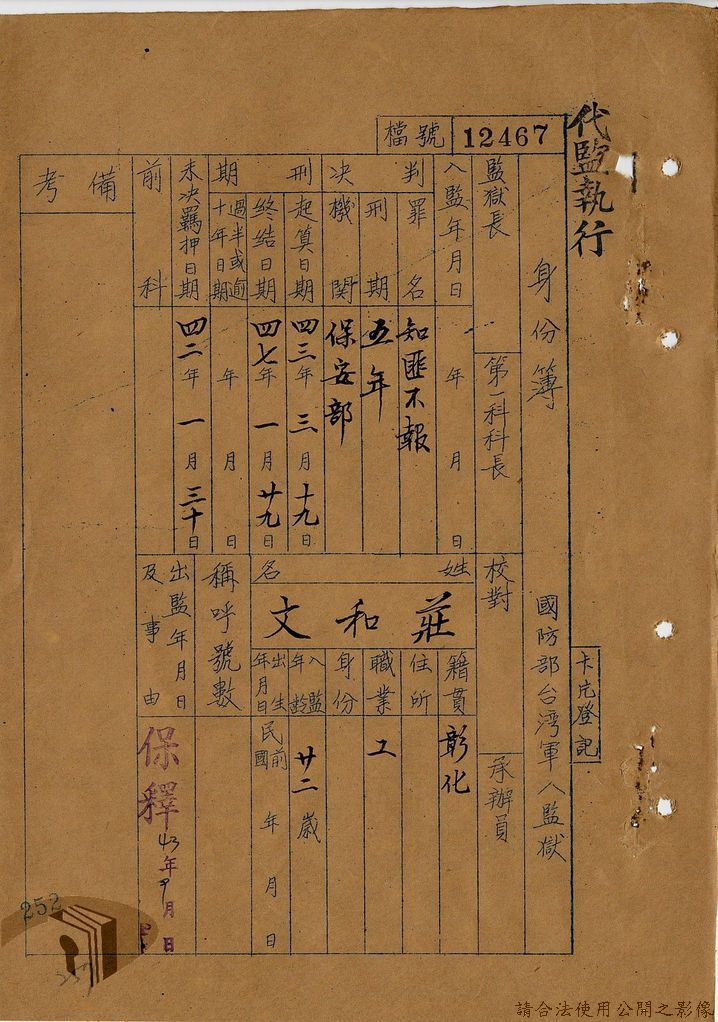 代監執行
檔號 12467
身份簿 國防部台湾軍人監獄
卡片登記
監獄長
第一科科長
校對
承辦員
入監年月日 年 月 日
判決
罪名 知匪不報
刑期 五年
機関 保安部
刑期
起算日期 四三年 三月 十九日
終结日期 四七年 一月 廿九日
過半或逾十年日期 年 月 日
未决羈押日期 四二年 一月 三十日
前科
備考
姓名
莊和文
籍貫 彰化
住所
職業 工
身份
入監年齡 廿二歲
出生年月日 民國前 年 月 日
稱呼號數
出監年月日及事由
保釋
43年9月 日
252
請合法使用公開之影像